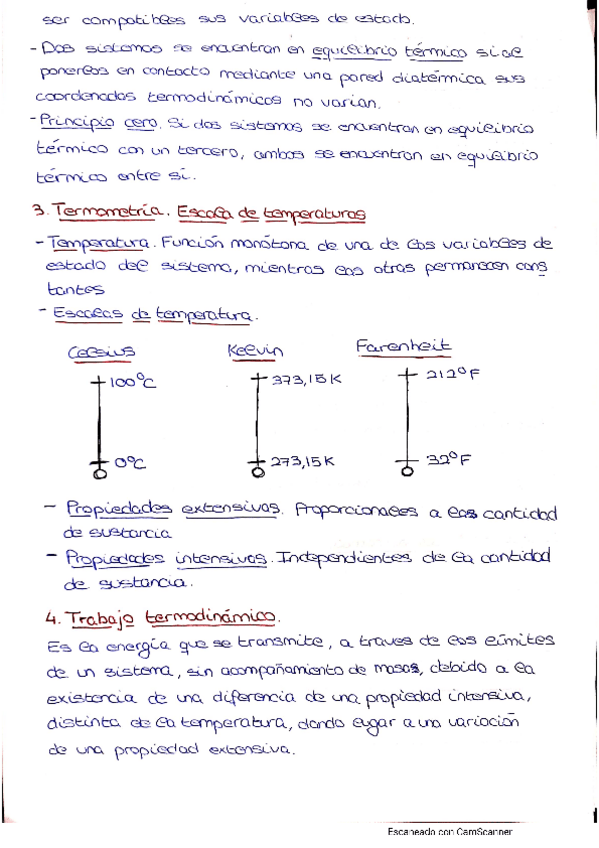 ser compatibles sus variables de estado.
- Dos sistemas se encuentran en equilibrio térmico si al
ponerlos en contacto mediante una pared diatérmica sus
coordenadas termodinámicas no varían.
- Principio cero. Si dos sistemas se encuentran en equilibrio
térmico con un tercero, ambos se encuentran en equilibrio
térmico entre sí.
3. Termometría. Escala de temperaturas
- Temperatura. Función monótona de una de las variables de
estado del sistema, mientras las otras permanecen cons
tantes
- Escalas de temperatura.
Celsius Kelvin Farenheit
100°C 373,15K 212°F
0°C 273,15K 32°F
- Propiedades extensivas. Proporcionales a las cantidad
de sustancia
- Propiedades intensivas. Independientes de la cantidad
de sustancia.
4. Trabajo termodinámico.
Es la energía que se transmite, a traves de los límites
de un sistema, sin acompañamiento de masas, debido a la
existencia de una diferencia de una propiedad intensiva,
distinta de la temperatura, dando lugar a una variación
de una propiedad extensiva.
Escaneado con CamScanner